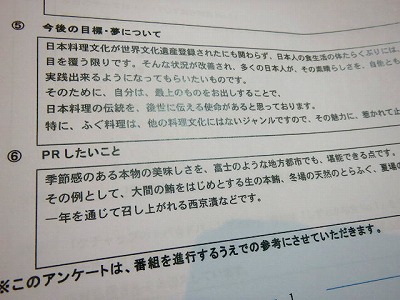 ⑤ 今後の目標・夢について
日本料理文化が世界文化遺産登録されたにも関わらず、日本人の食生活の体たらくぶりには、
目を覆う限りです。そんな状況が改善され、多くの日本人が、その素晴らしさを、自他とも
実践出来るようになってもらいたいものです。
そのために、自分は、最上のものをお出しすることで、
日本料理の伝統を、後世に伝える使命があると思っております。
特に、ふぐ料理は、他の料理文化にはないジャンルですので、その魅力に、惹かれて止
⑥ PRしたいこと
季節感のある本物の美味しさを、富士のような地方都市でも、堪能できる点です。
その例として、大間の鮪をはじめとする生の本鮪、冬場の天然のとらふぐ、夏場の
一年を通じて召し上がれる西京漬などです。
※このアンケートは、番組を進行するうえでの参考にさせていただきます。